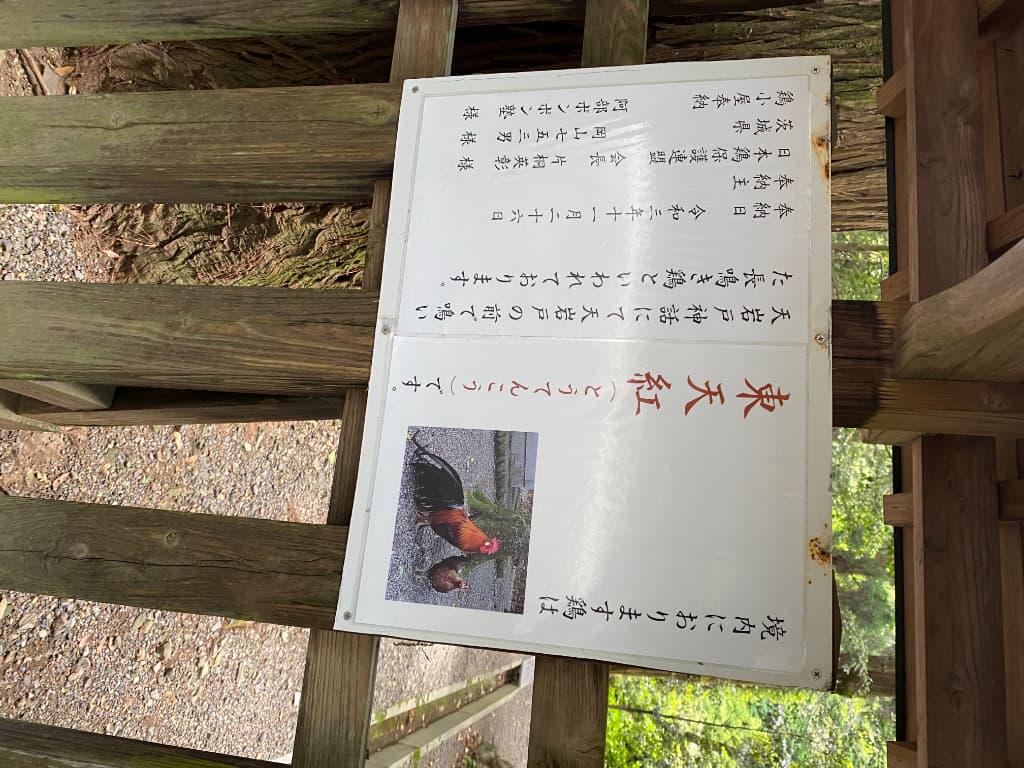 境内におります鶏は
東天紅（とうてんこう）です。
天岩戸神話にて天岩戸の前で鳴い
た長鳴き鶏といわれております。
奉納日 令和三年十一月二十六日
奉納主
日本鶏保護連盟 会長 片桐英彰 様
茨城県 岡山七五三男 様
鶏小屋奉納 阿部ボンボン塾 様